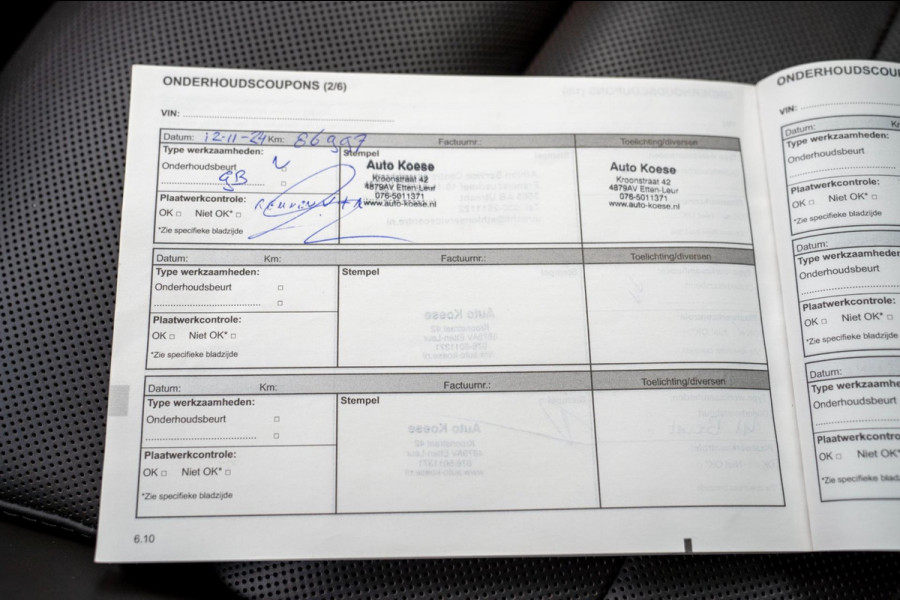 ONDERHOUDSCOUPONS (2/6)
VIN:
Datum: 12-11-24 Km: 86997 Factuurnr.: Toelichting/diversen
Type werkzaamheden:
Onderhoudsbeurt
gB
Plaatwerkcontrole:
OK □ Niet OK* □
*Zie specifieke bladzijde
Stempel
Auto Koese
Kroonstraat 42
4879AV Etten-Leur
076-5011371
www.auto-koese.nl
Auto Koese
Kroonstraat 42
4879AV Etten-Leur
076-5011371
www.auto-koese.nl
Datum: Km: Factuurnr.: Toelichting/diversen
Type werkzaamheden:
Onderhoudsbeurt □
□
Plaatwerkcontrole:
OK □ Niet OK* □
*Zie specifieke bladzijde
Stempel
Datum: Km: Factuurnr.: Toelichting/diversen
Type werkzaamheden:
Onderhoudsbeurt □
□
Plaatwerkcontrole:
OK □ Niet OK* □
*Zie specifieke bladzijde
Stempel
6.10
ONDERHOUDSCOU
VIN:
Datum: K
Type werkzaamhe
Onderhoudsbeurt
Plaatwerkcontrole:
OK □ Niet OK* □
*Zie specifieke bladzijde
Datum:
Type werkzaamhe
Onderhoudsbeurt
Plaatwerkcontrole:
OK □ Niet OK* □
*Zie specifieke bladzijde
Datum:
Type werkzaamhe
Onderhoudsbeurt
Plaatwerkcontro
OK □ Niet OK*
*Zie specifieke bladz